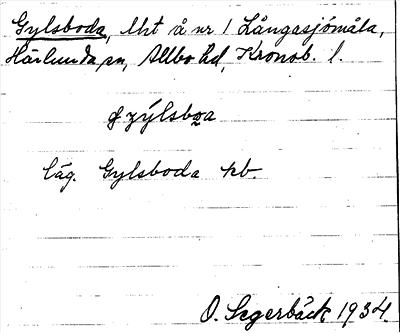 Gylsboda, lht å nr 1 Långasjömåla,
Härlunda sn, Allbo hd, Kronob. l.
läg. Gylsboda kb.
O. Segerbäck 1934.